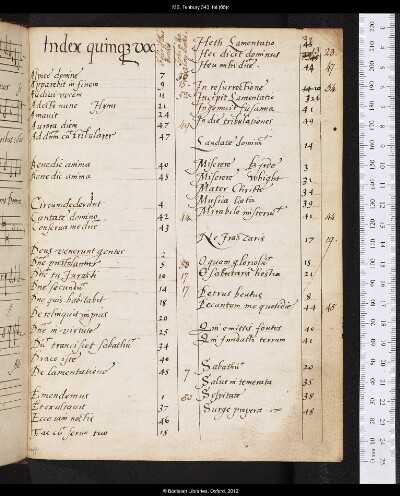 MS. Tenbury 343, fol. (66)r
Index quinq voc
Aspice domine 7
Apparebit in finem 9
Audivi vocem 11
Adesto nunc Hymi 21
Amavit 24
Aurora diem 47
Ad dnm cu tribularer 47
Benedic anima 40
Bene dic anima 45
Circumdederunt 4
Cantate domino 42 44
Conserva me dne 43
Deus venerunt gentes 2
Dne præstolamur 5
Dne tu Jurasti 10 17
Dne secundu 14 17
Dne quis habitabit 18
Derelinquit impius 20
Dne in virtute 25
34
Draco iste 40
De lamentatione 45 7
Emendemus 1
Et exultavit 37
Ecce iam noctis 46
Fac cu servo tuo 15
Heth Lamentatio
Hec dicit dominus 23
Heu mihi dne 44 47
In resurrectione
Incipit Lamentatio
In ieiunio
In die tribulationis 49
Laudate dominu 14
Miserere Byrde 3
Miserere Whight 31
Mater Christi 34
Musica læta 39
Mirabile misteriu 41 44
Ne Irascaris 17 19
O quam gloriosu 15
O salutaris hostia 21
Petrus beatus 8
Peccantem me quotidie 44 45
Qui omittis fontes 40
Qui fundasti terram 41
Sabathu 20
Salve intemerata 35
Sospitate 38
Surge propera 48
© Bodleian Libraries, Oxford, 2012